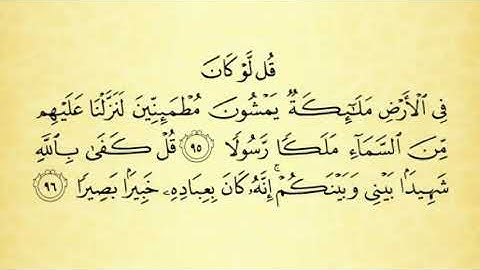 قُل لَّوْ كَانَ
فِي ٱلْأَرْضِ مَلَٰٓئِكَةٌ يَمْشُونَ مُطْمَئِنِّينَ لَنَزَّلْنَا عَلَيْهِم
مِّنَ ٱلسَّمَآءِ مَلَكًا رَّسُولًا ٩٥ قُلْ كَفَىٰ بِٱللَّهِ
شَهِيدًۢا بَيْنِي وَبَيْنَكُمْ ۚ إِنَّهُۥ كَانَ بِعِبَادِهِۦ خَبِيرًۢا بَصِيرًا ٩٦